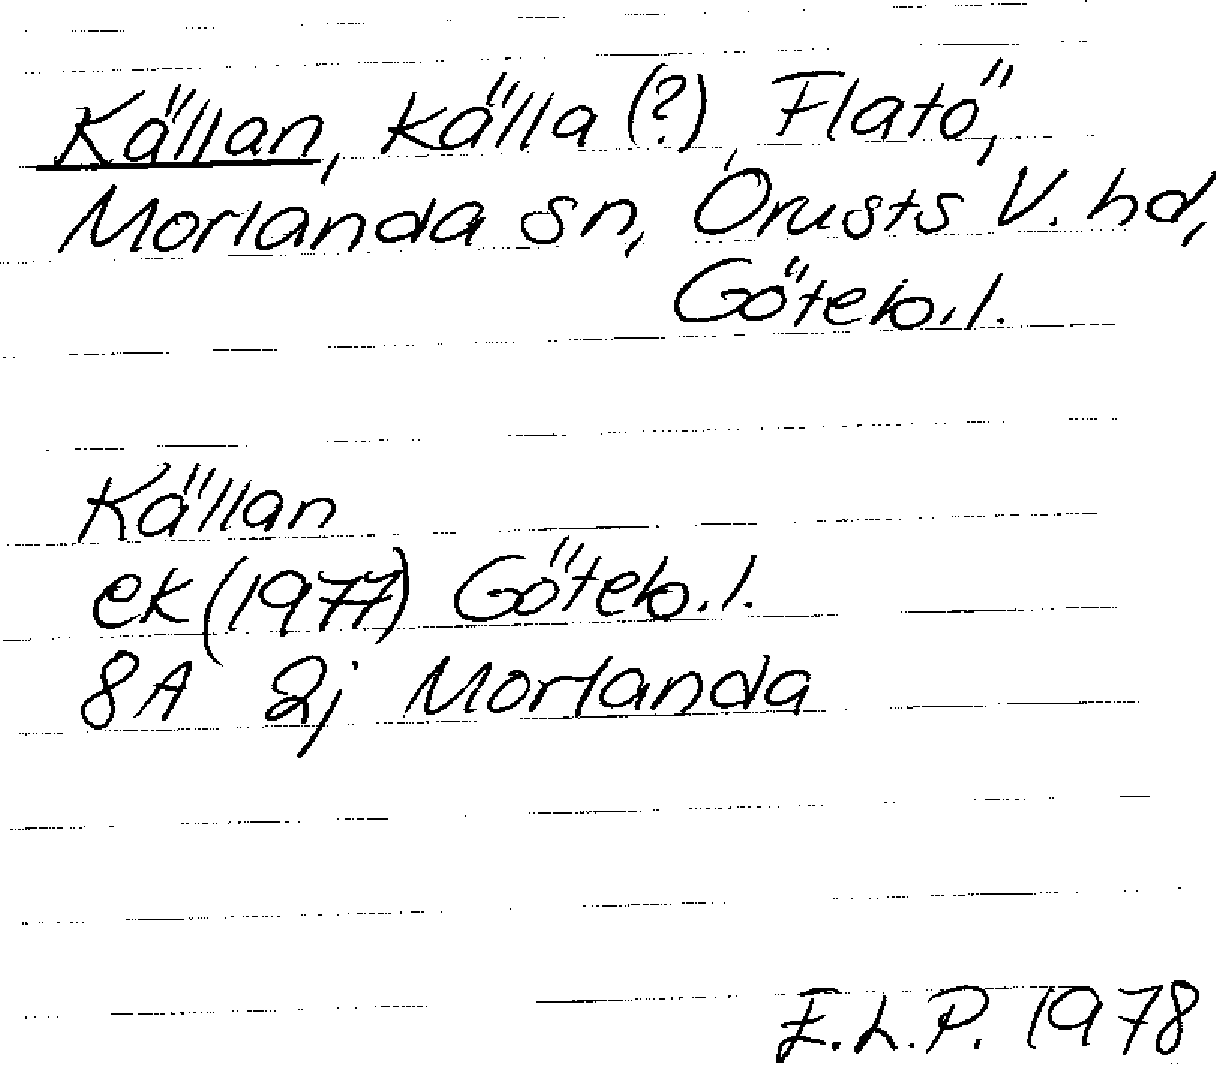 Källan, Källa (?), Flatö,
Morlanda sn, Orusts V. hd,
Göteb. l.
Källan
ek (1977) Göteb. l.
8A 2j Morlanda
E.L.P. 1978